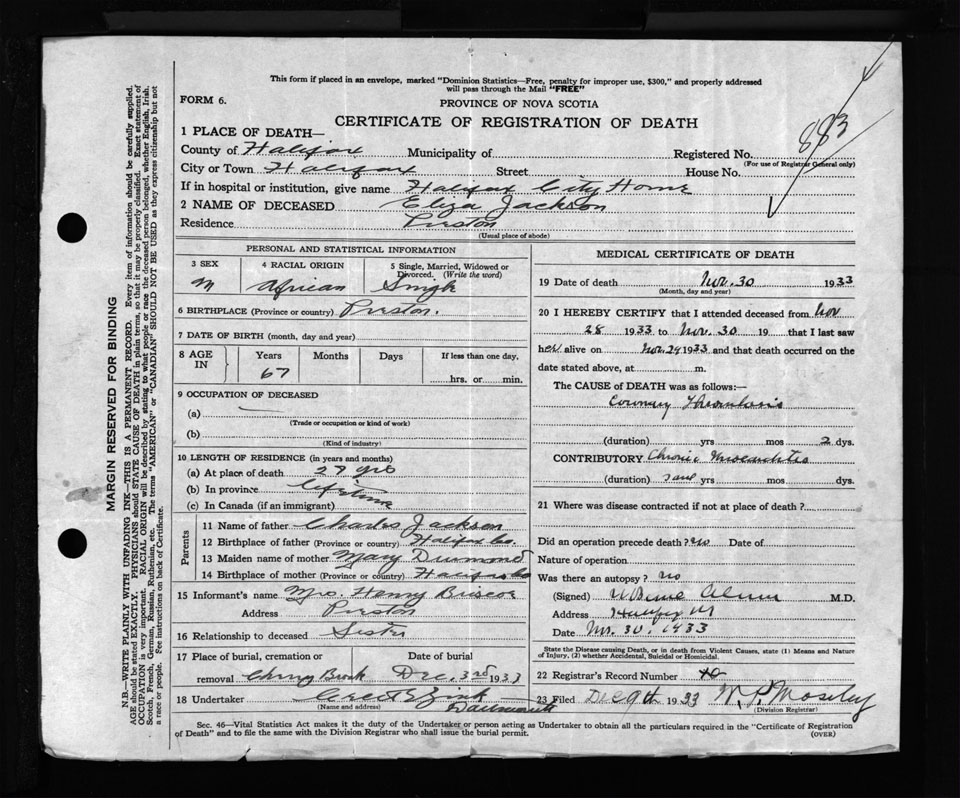 This form if placed in an envelope, marked "Dominion Statistics—Free, penalty for improper use, $300," and properly addressed
will pass through the Mail "FREE"
FORM 6.
PROVINCE OF NOVA SCOTIA
CERTIFICATE OF REGISTRATION OF DEATH
883
1 PLACE OF DEATH—
County of Halifax Municipality of Registered No.
(For use of Registrar General only)
City or Town Halifax Street House No.
If in hospital or institution, give name Halifax City Home
2 NAME OF DECEASED Eliza Jackson
Residence Preston
(Usual place of abode)
PERSONAL AND STATISTICAL INFORMATION
3 SEX 4 RACIAL ORIGIN 5 Single, Married, Widowed or Divorced. (Write the word)
African Single
6 BIRTHPLACE (Province or country) Preston.
7 DATE OF BIRTH (month, day and year)
8 AGE IN Years Months Days If less than one day,
67 hrs. or min.
9 OCCUPATION OF DECEASED
(a) —
(Trade or occupation or kind of work)
(b)
(Kind of industry)
10 LENGTH OF RESIDENCE (in years and months)
(a) At place of death 27 yrs
(b) In province Lifetime
(c) In Canada (if an immigrant)
Parents
11 Name of father Charles Jackson
12 Birthplace of father (Province or country) Halifax Co
13 Maiden name of mother Mary Drumond
14 Birthplace of mother (Province or country) Halifax Co
15 Informant's name Mrs. Henry Briscoe
Address Preston
16 Relationship to deceased Sister
17 Place of burial, cremation or removal Date of burial
Cherry Brook Dec. 3rd 1933
18 Undertaker Zink
(Name and address) Dartmouth
MEDICAL CERTIFICATE OF DEATH
19 Date of death Nov. 30 1933
(Month, day and year)
20 I HEREBY CERTIFY that I attended deceased from Nov
28 1933 to Nov. 30 19 that I last saw
her alive on Nov. 29 1933 and that death occurred on the
date stated above, at m.
The CAUSE of DEATH was as follows:—
Coronary Thrombosis
(duration) yrs mos 2 dys.
CONTRIBUTORY Chronic Myocarditis
(duration) yrs mos dys.
21 Where was disease contracted if not at place of death?
Did an operation precede death? no Date of
Nature of operation
Was there an autopsy? no
(Signed) M.D.
Address
Date Nov. 30, 1933
State the Disease causing Death, or in death from Violent Causes, state (1) Means and Nature
of Injury, (2) whether Accidental, Suicidal or Homicidal.
22 Registrar's Record Number
23 Filed Dec 9th 1933 W. P. Moseley
(Division Registrar)
Sec. 46—Vital Statistics Act makes it the duty of the Undertaker or person acting as Undertaker to obtain all the particulars required in the "Certificate of Registration
of Death" and to file the same with the Division Registrar who shall issue the burial permit. (OVER)
MARGIN RESERVED FOR BINDING
N.B.—WRITE PLAINLY WITH UNFADING INK—THIS IS A PERMANENT RECORD. Every item of information should be carefully supplied.
AGE should be stated EXACTLY. PHYSICIANS should STATE CAUSE OF DEATH in plain terms, so that it may be properly classified. Exact statement of
OCCUPATION is very important. RACIAL ORIGIN will be described by stating to what people or race the deceased person belonged, whether English, Irish,
Scotch, French, German, Russian, Ruthenian, etc. The terms "AMERICAN" or "CANADIAN" SHOULD NOT BE USED as they express citizenship but not
a race or people. See instructions on back of Certificate.